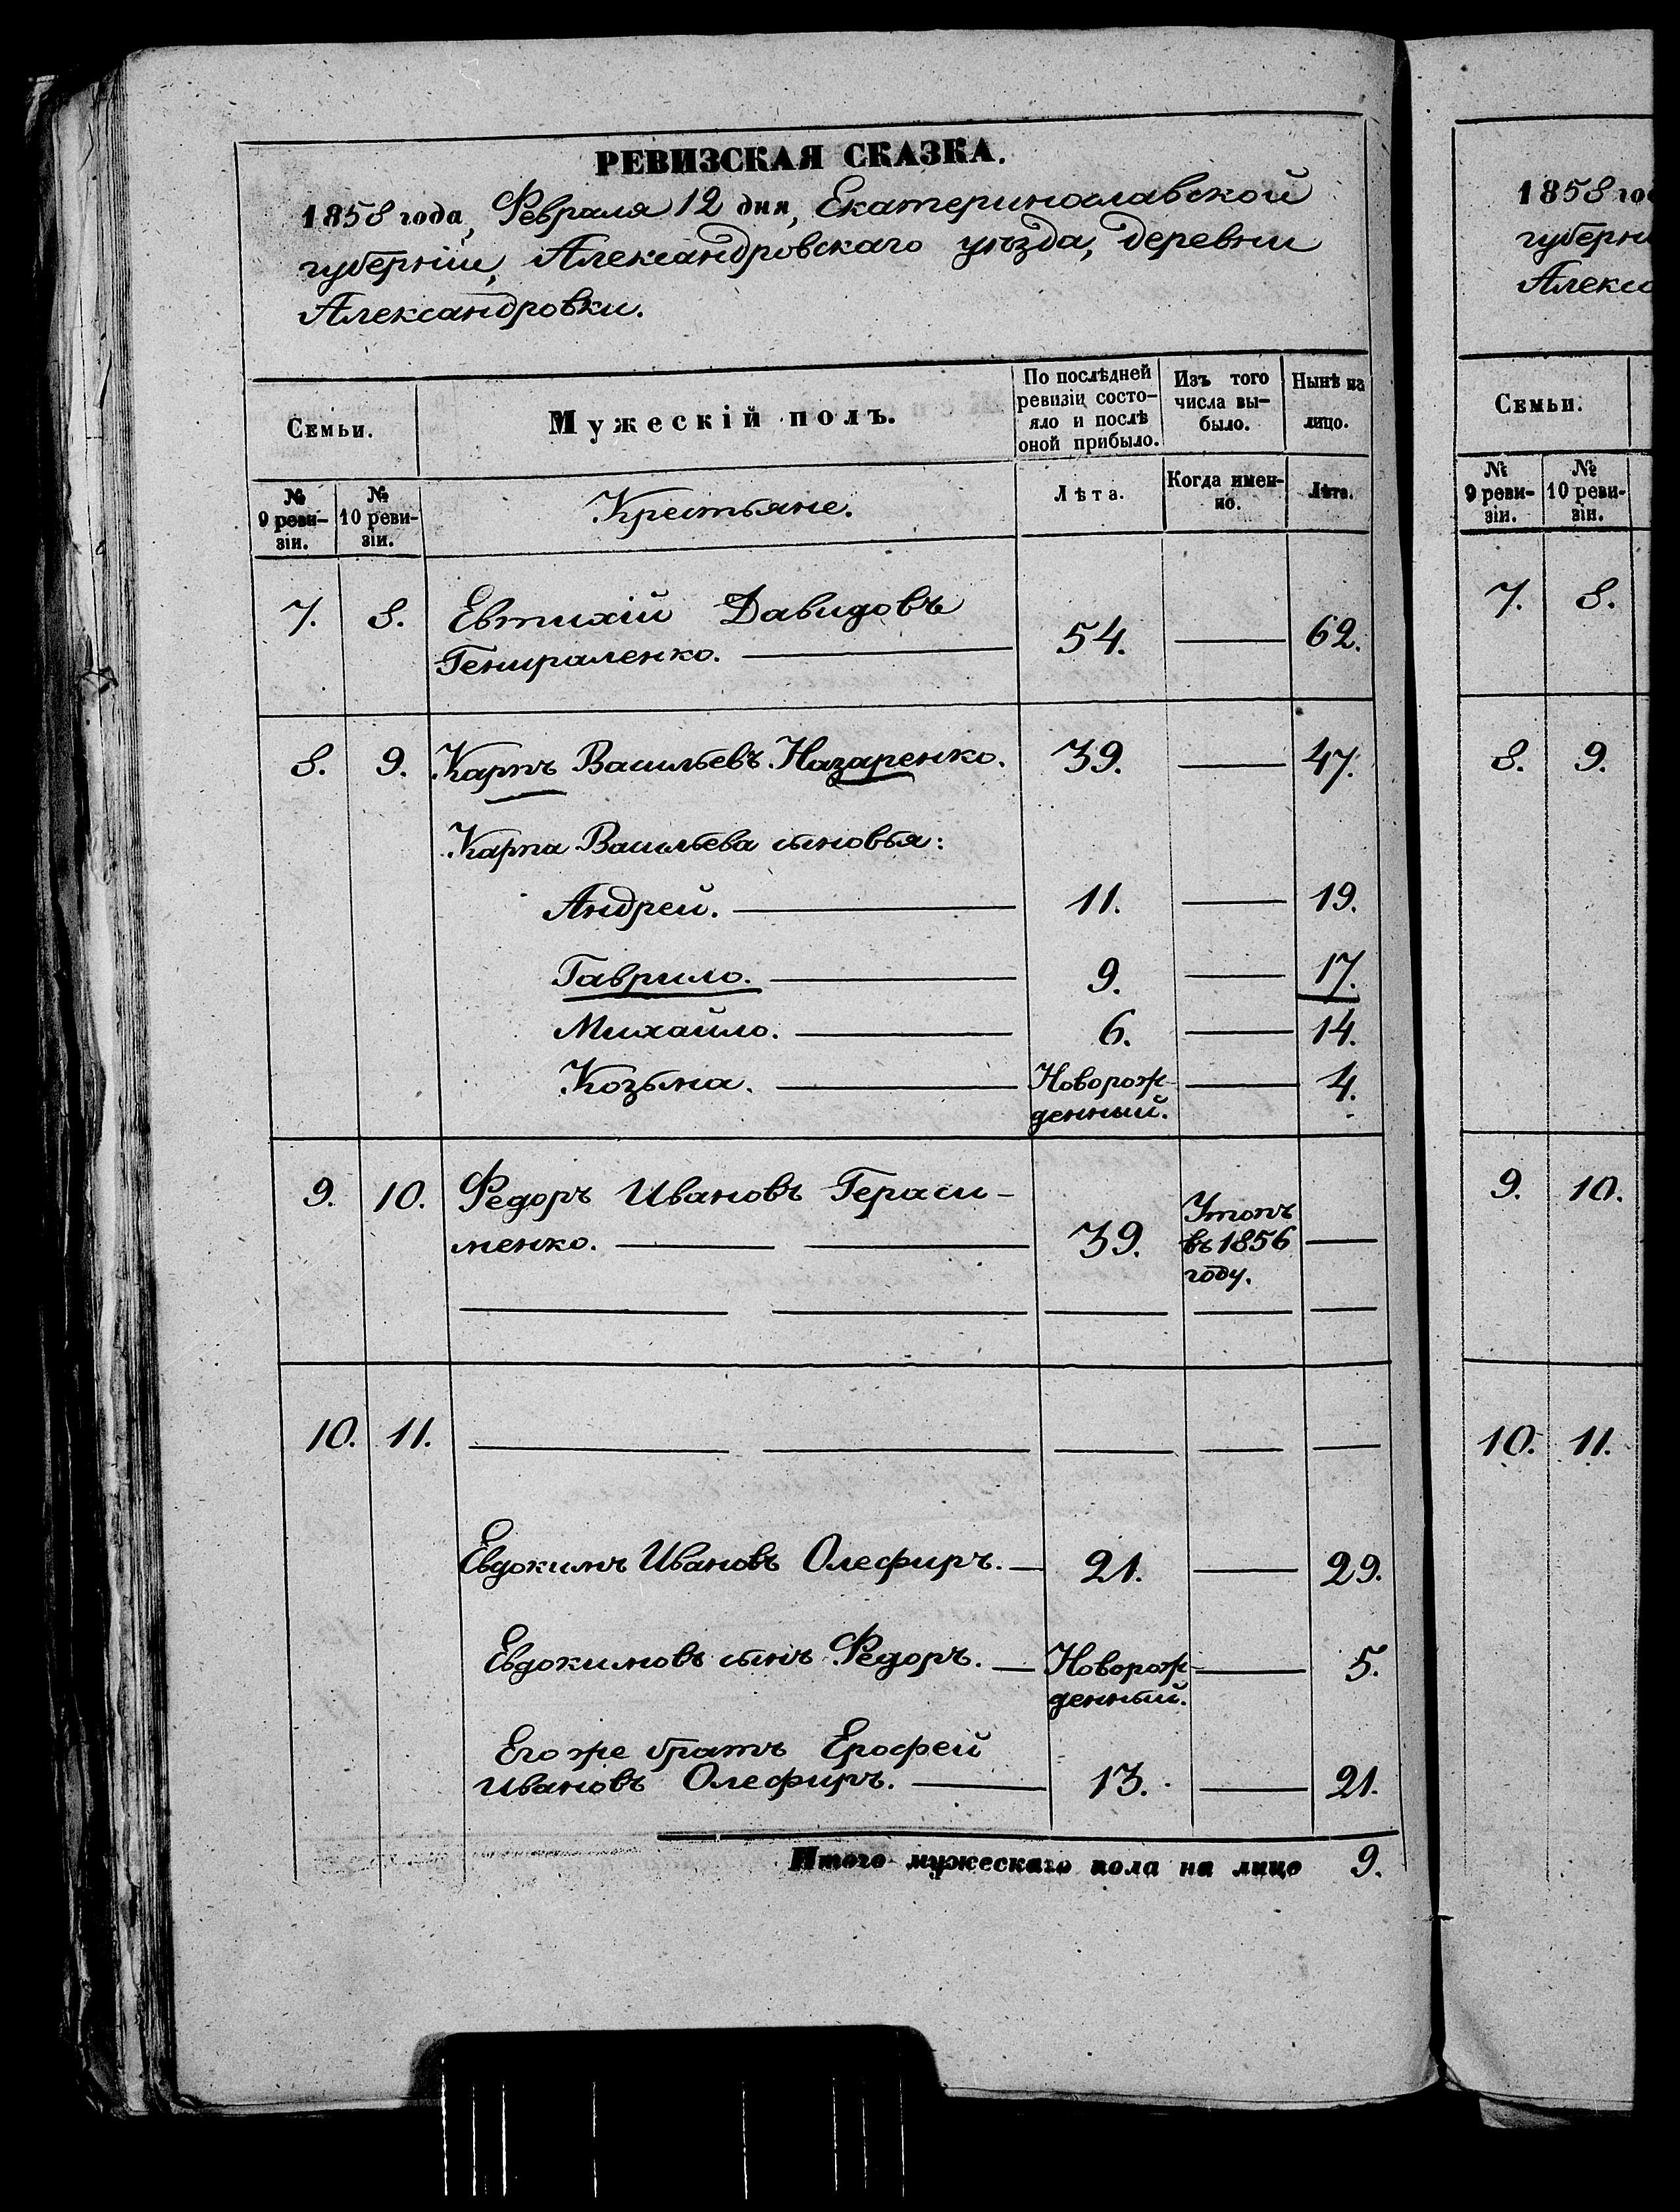 РЕВИЗСКАЯ СКАЗКА.
1858 года, Февраля 12 дня, Екатеринославской
губерніи, Александровскаго уѣзда, деревни
Александровки.
Семьи.
Мужескій полъ.
По послѣдней ревизіи состо-
яло и послѣ оной прибыло.
Изъ того числа вы-
было.
Нынѣ на лицо.
№ 9 реви-
зіи.
№ 10 реви-
зіи.
Крестьяне.
Лѣта.
Когда имен-
но.
Лѣта.
7. 8. Евтихій Давидовъ
Генираленко. 54. 62.
8. 9. Карпъ Васильевъ Назаренко. 39. 47.
Карпа Васильева сыновья:
Андрей. 11. 19.
Гаврило. 9. 17.
Михайло. 6. 14.
Козьма. Новорож-
денный. 4.
9. 10. Федоръ Ивановъ Гераси-
менко. 39. Утопъ
въ 1856
году.
10. 11.
Евдокимъ Ивановъ Олефиръ. 21. 29.
Евдокимовъ сынъ Федоръ. Новорож-
денный. 5.
Его же братъ Ерофей
Ивановъ Олефиръ. 13. 21.
Итого мужескаго пола на лицо 9.
1858
губерн
Алекса
Семьи.
№ 9 реви-
зіи.
№ 10 реви-
зіи.
7. 8.
8. 9.
9. 10.
10. 11.